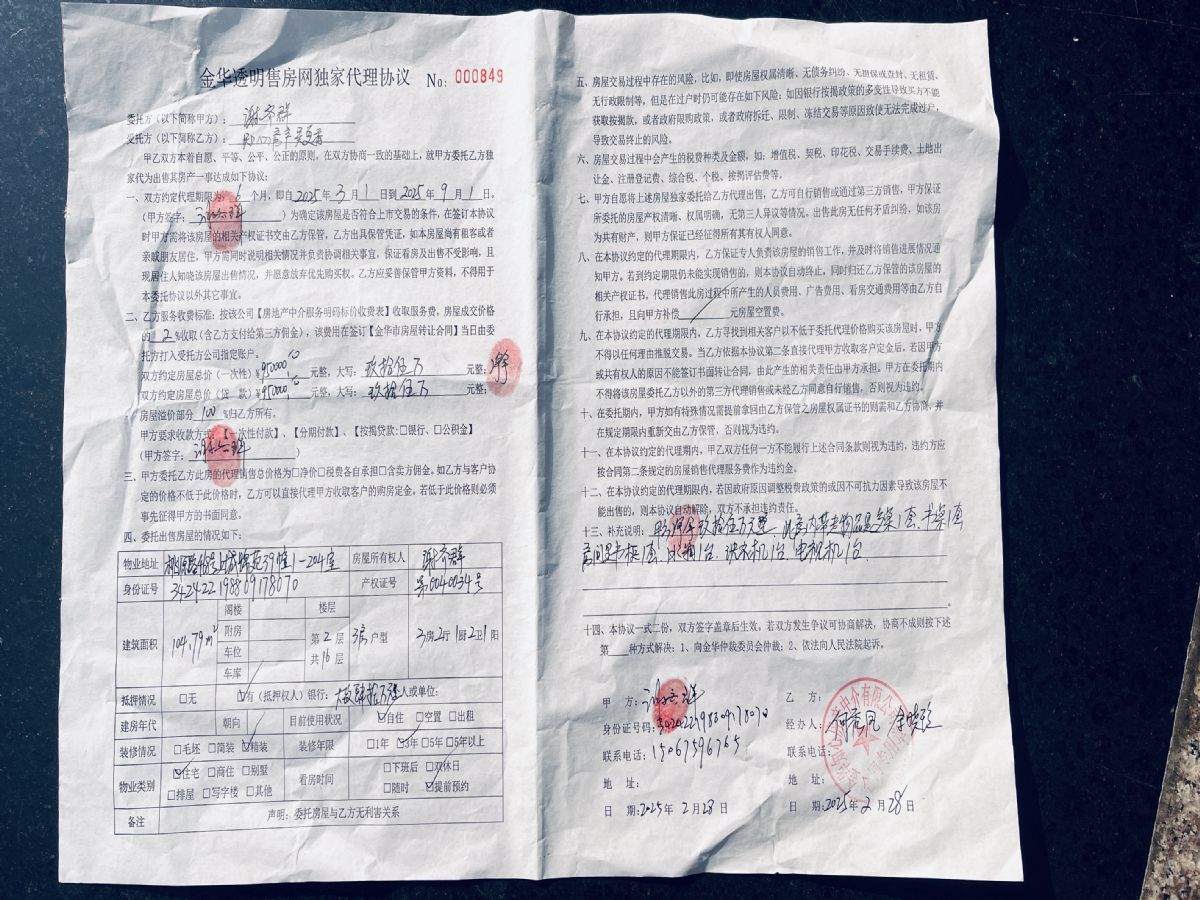 金华透明售房网独家代理协议 No: 000849
委托方（以下简称甲方）：谢齐群
受托方（以下简称乙方）：
甲乙双方本着自愿、平等、公平、公正的原则，在双方协商一致的基础上，就甲方委托乙方独
家代为出售其房产一事达成如下协议：
一、双方约定代理期限为：6个月，即自2025年3月1日到2025年9月1日。
（甲方签字： ）为确定该房屋是否符合上市交易的条件，在签订本协议
时甲方需将该房屋的相关产权证书交由乙方保管，乙方出具保管凭证，如本房屋尚有租客或者
亲戚朋友居住，甲方需同时说明相关情况并负责协调相关事宜，保证看房及出售不受影响，且
现居住人知晓该房屋出售情况，并愿意放弃优先购买权。乙方应妥善保管甲方资料，不得用于
本委托协议以外其它事宜。
二、乙方服务收费标准：按该公司【房地产中介服务明码标价收费表】收取服务费，房屋成交价格
的 2 %收取（含乙方支付给第三方佣金），该费用在签订【金华市房屋转让合同】当日由委
托方打入受托方公司指定账户。
双方约定房屋总价（一次性）¥950000元整，大写：玖拾伍万 元整；
双方约定房屋总价（贷 款）¥950000元整，大写：玖拾伍万 元整；
房屋溢价部分 100 %归乙方所有。
甲方要求收款方式：【一次性付款】、【分期付款】、【按揭贷款:□银行、□公积金】
（甲方签字： ）
三、甲方委托乙方此房的代理销售总价格为□净价□税费各自承担□含卖方佣金。如乙方与客户协
定的价格不低于此价格时，乙方可以直接代理甲方收取客户的购房定金。若低于此价格则必须
事先征得甲方的书面同意。
四、委托出售房屋的情况如下：
物业地址 39幢1-204室 房屋所有权人 谢齐群
身份证号 342422198809178070 产权证号 第0040034号
建筑面积 104.79m² 阁楼 附房 车位 车库 楼层 第2层 共16层 3房户型 3房2厅1厨2卫1阳
抵押情况 □无 ☑有（抵押权人）银行： 人或单位：
建房年代 朝向 目前使用状况 ☑自住 □空置 □出租
装修情况 □毛坯 □简装 ☑精装 装修年限 □1年 ☑3年 □5年 □5年以上
物业类别 ☑住宅 □商住 □别墅 □排屋 □写字楼 □其他 看房时间 □下班后 □双休日 □随时 ☑提前预约
备注 声明：委托房屋与乙方无利害关系
五、房屋交易过程中存在的风险，比如，即使房屋权属清晰、无债务纠纷、无担保或查封、无租赁、
无行政限制等，但是在过户时仍可能存在如下风险：如因银行按揭政策的多变性导致买方不能
获取按揭款，或者政府限购政策，或者政府拆迁、限制、冻结交易等原因致使无法完成过户，
导致交易终止的风险。
六、房屋交易过程中会产生的税费种类及金额，如：增值税、契税、印花税、交易手续费、土地出
让金、注册登记费、综合税、个税、按揭评估费等。
七、甲方自愿将上述房屋独家委托给乙方代理出售，乙方可自行销售或通过第三方销售，甲方保证
所委托的房屋产权清晰、权属明确，无第三人异议等情况。出售此房无任何矛盾纠纷，如该房
为共有财产，则甲方保证已经征得所有其有权人同意。
八、在本协议约定的代理期限内，乙方保证专人负责该房屋的销售工作，并及时将销售进展情况通
知甲方。若到约定期限仍未能实现销售的，则本协议自动终止，同时归还乙方保管的该房屋的
相关产权证书。代理销售此房过程中所产生的人员费用、广告费用、看房交通费用等由乙方自
行承担，且向甲方补偿 元房屋空置费。
九、在本协议约定的代理期限内，乙方寻找到相关客户以不低于委托代理价格购买该房屋时，甲方
不得以任何理由推脱交易。当乙方依据本协议第二条直接代理甲方收取客户定金后，若因甲方
或共有权人的原因不能签订书面转让合同，由此产生的相关责任由甲方承担。甲方在委托期内
不得将该房屋委托乙方以外的第三方代理销售或未经乙方同意自行销售，否则视为违约。
十、在委托期内，甲方如有特殊情况需提前拿回由乙方保管之房屋权属证书的则需和乙方协商，并
在规定期限内重新交由乙方保管，否则视为违约。
十一、在本协议约定的代理期内，甲乙双方任何一方不能履行上述合同条款则视为违约，违约方应
按合同第二条规定的房屋销售代理服务费作为违约金。
十二、在本协议约定的代理期限内，若因政府原因调整税费政策的或因不可抗力因素导致该房屋不
能出售的，则本协议自动解除，双方不承担违约责任。
十三、补充说明：
冰箱1台. 洗衣机1台. 电视机1台.
十四、本协议一式二份，双方签字盖章后生效，若双方发生争议可协商解决，协商不成则按下述
第 种方式解决：1、向金华仲裁委员会仲裁；2、依法向人民法院起诉。
甲 方：
身份证号码：342422198809178070
联系电话：15067596765
地 址：
日 期：2025年2月28日
乙 方：
经办人：
联系电话：
地 址：
日 期：2025年2月28日